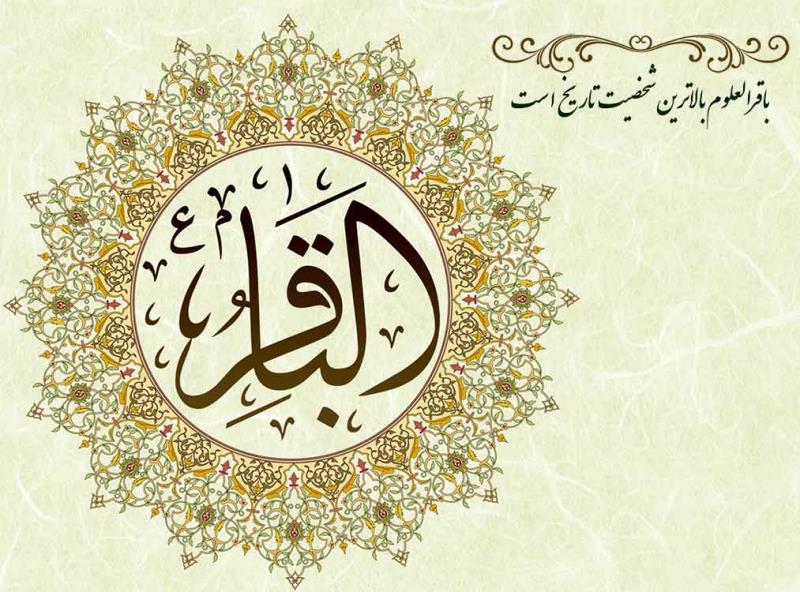 باقرالعلوم بالاترین شخصیت تاریخ است
الباقر